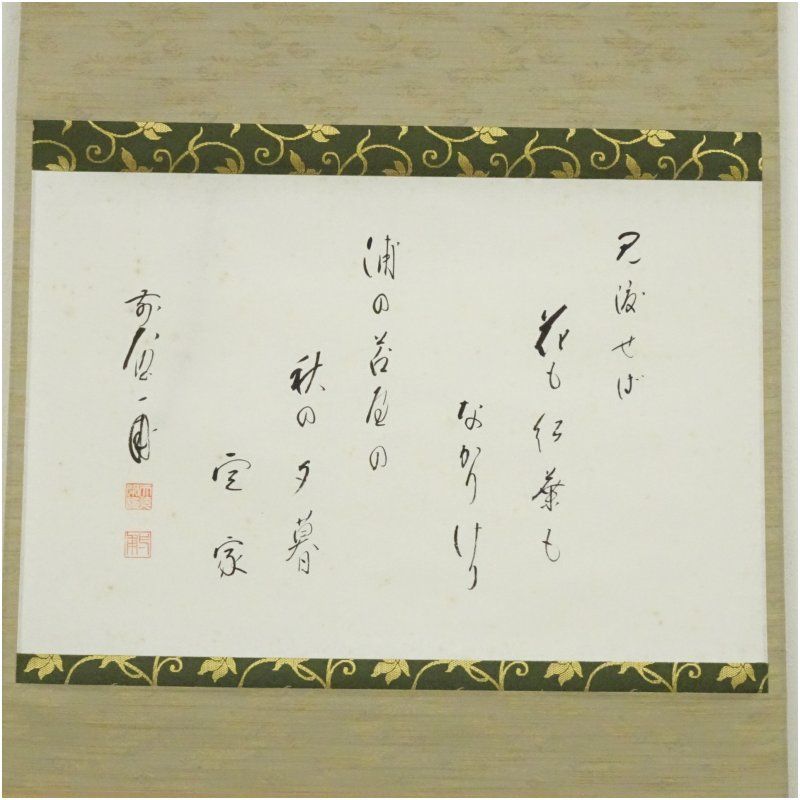 見渡せば
花も紅葉も
なかりけり
浦の苫屋の
秋の夕暮
定家